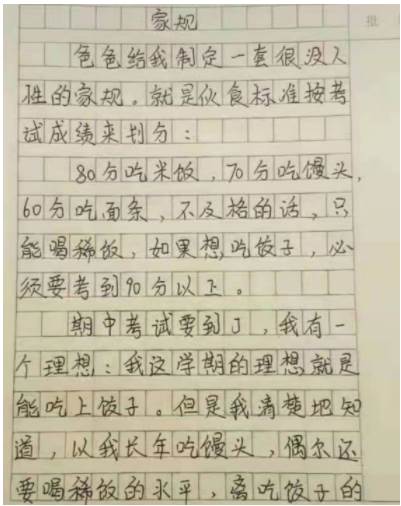 家规
爸爸给我制定一套很没人
性的家规。就是伙食标准按考
试成绩来划分：
80分吃米饭，70分吃馒头，
60分吃面条，不及格的话，只
能喝稀饭，如果想吃饺子，必
须要考到90分以上。
期中考试要到了，我有一
个理想：我这学期的理想就是
能吃上饺子。但是我清楚地知
道，以我长年吃馒头，偶尔还
要喝稀饭的水平，离吃饺子的
批